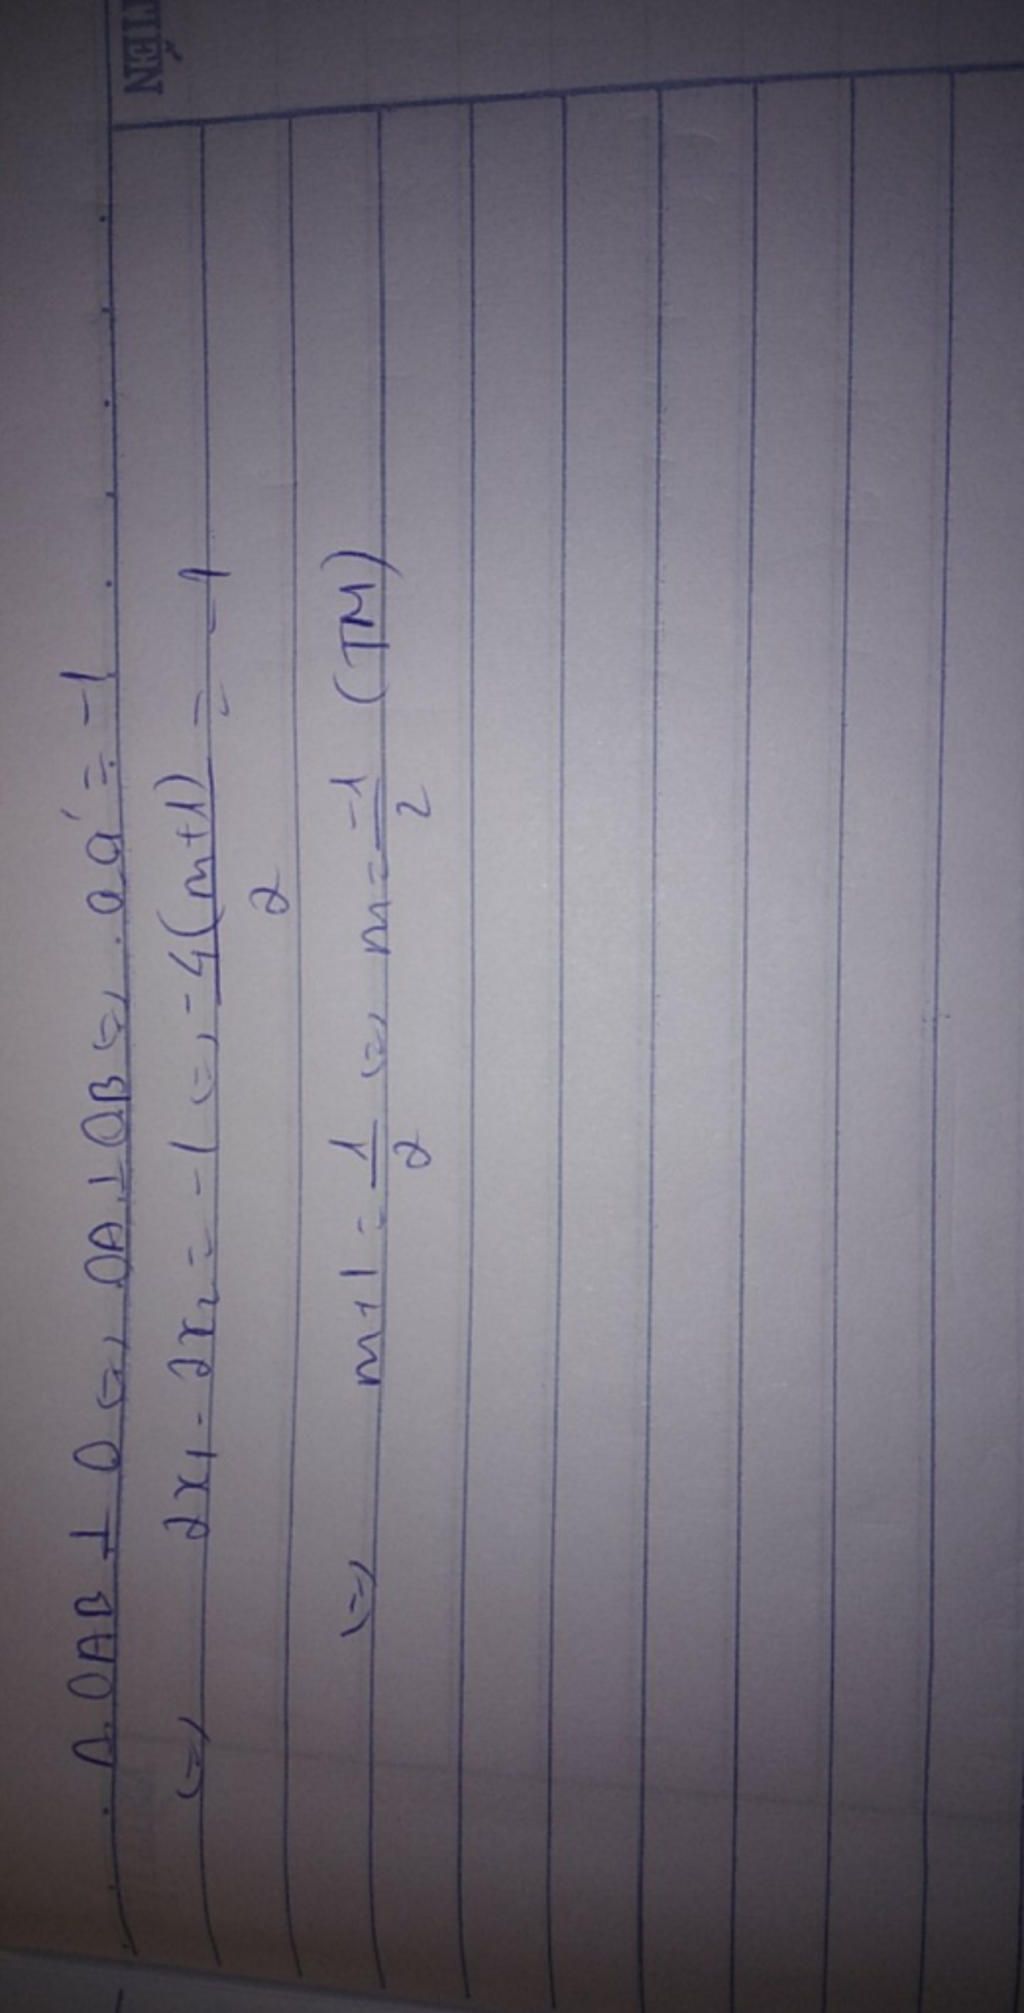 Δ OAB ⊥ O <=> OA ⊥ OB <=> a.a' = -1
<=> 2x₁ . 2x₂ = -1 <=> -4(m+1)/2 = -1
<=> m+1 = 1/2 <=> m = -1/2 (TM)